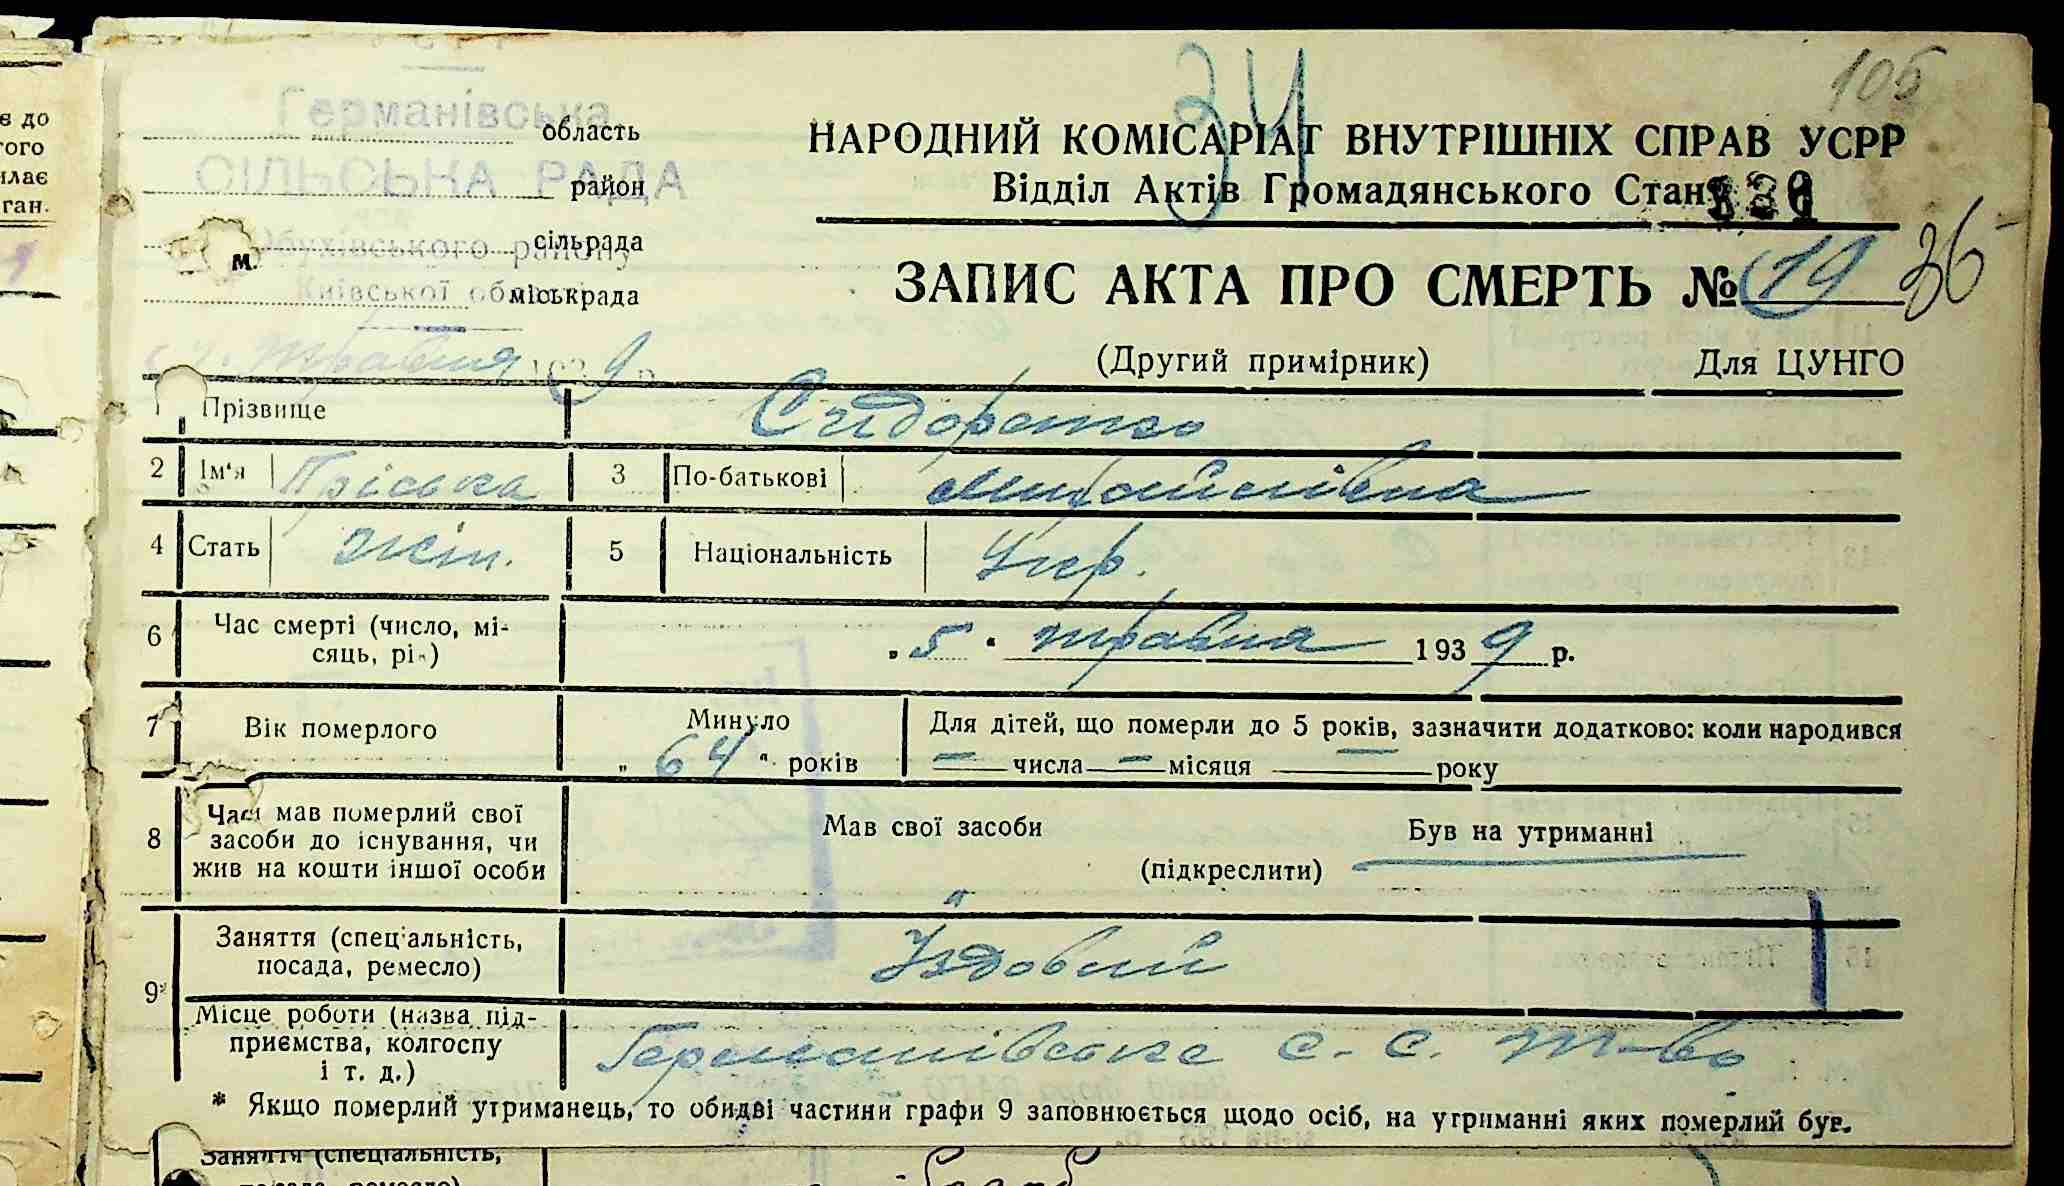 105
34
Германівська
область
НАРОДНИЙ КОМІСАРІАТ ВНУТРІШНІХ СПРАВ УСРР
СІЛЬСЬКА РАДА
район
Відділ Актів Громадянського Стану
Обухівського району
сільрада
м.
Київської
міськрада
ЗАПИС АКТА ПРО СМЕРТЬ № 19 36
травня 1939 р.
(Другий примірник) Для ЦУНГО
1 Прізвище Сидоренко
2 Ім'я Пріська 3 По-батькові Михайлівна
4 Стать жін. 5 Національність Укр.
6 Час смерті (число, місяць, рік) „5“ травня 1939 р.
7 Вік померлого Минуло „64“ років Для дітей, що померли до 5 років, зазначити додатково: коли народився
— числа — місяця — року
8 Чи мав померлий свої засоби до існування, чи жив на кошти іншої особи Мав свої засоби Був на утриманні
(підкреслити)
9* Заняття (спеціальність, посада, ремесло) Їздовий
Місце роботи (назва підприємства, колгоспу і т. д.) Германівське с. с. т-во
* Якщо померлий утриманець, то обидві частини графи 9 заповнюється щодо осіб, на утриманні яких померлий був.
Заняття (спеціальність,